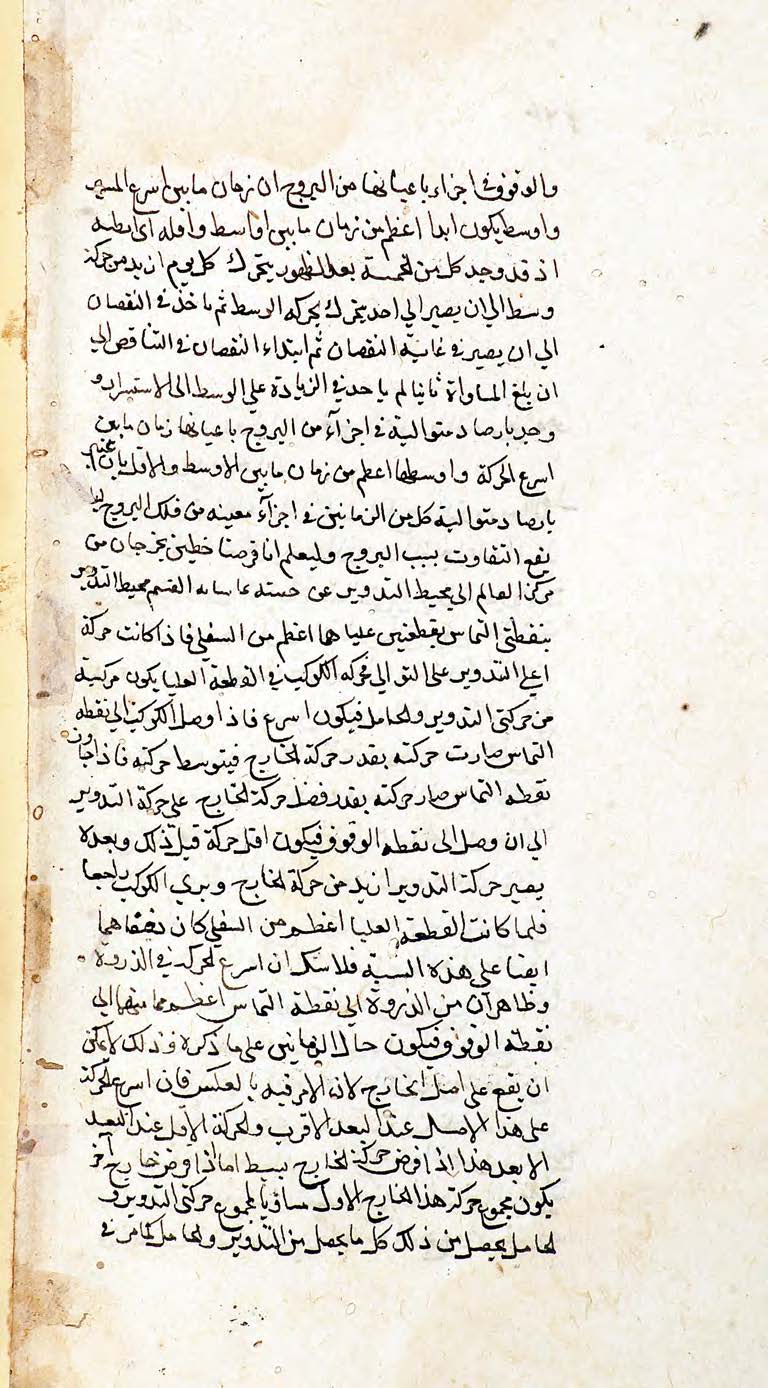 والوقوف في اجزاء باعيانها من البروج ان زمان ما بين اسرع المسير
واوسط يكون ابدا اعظم من زمان ما بين اواسط واقله اي ابطيه
اذ قد وجد كل من الخمسة بعد الظهور يتحرك كل يوم ازيد من حركة
وسط الي ان يصير الي احد يتحرك بحركه الوسط ثم ياخذ في النقصان
الي ان يصير في غاية النقصان ثم ابتداء النقصان في التناقص الي
ان يبلغ المساواة ثانيا ثم ياخد في الزيادة علي الوسط الى الاستسرار و
وجد بارصاد متوالية في اجزآء من البروج باعيانها زمان ما بين
اسرع الحركة واوسطها اعظم من زمان ما بين الاوسط والاقل بان
بارصاد متوالية كل من الزمانين في اجزآء معينه من فلك البروج ليلا
يقع التفاوت بسبب البروج وليعلم انا فرضنا خطين يخرجان من
مركز العالم الي محيط التدوير عن جنبته انقسم محيط التدوير
بنقطتي التماس بقطعتين علياهما اعظم من السفلي فاذا كانت حركة
اعلي التدوير على التوالي فحركه الكوكب في القطعة العليا يكون مركبة
من حركتي التدوير والحامل فيكون اسرع فاذا وصل الكوكب الي نقطه
التماس صارت حركته بقدر حركة الخارج فيتوسط حركته فاذا جاوز
نقطه التماس صار حركته بقدر فضل حركة الخارج علي حركة التدوير
الي ان وصل الى نقطه الوقوف فيكون اقل حركة قبل ذلك وبعده
يصير حركة التدوير ازيد من حركة الخارج ويري الكوكب راجعا
فلما كانت القطعة العليا اعظم من السفلي كان نصفاهما
ايضا علي هذه النسبة فلا شك ان اسرع الحركة في الذروة
وظاهر ان من الذروة الي نقطة التماس اعظم مما منها الي
نقطة الوقوف فيكون حال الزمانين علي ما ذكره وذلك لا يمكن
ان يقع على اصل الخارج لان الامر فيه بالعكس فان اسرع الحركة
على هذا الاصل عند البعد الاقرب والحركة الاقل عند البعد
الابعد هذا اذا فرض حركة الخارج بسيط اما اذا فرض خارج آخر
يكون مجموع حركة هذا الخارج الاول مساويا لمجموع حركتي التدوير و
الحامل يحصل من ذلك كل ما يحصل من التدوير والحامل كما مر في